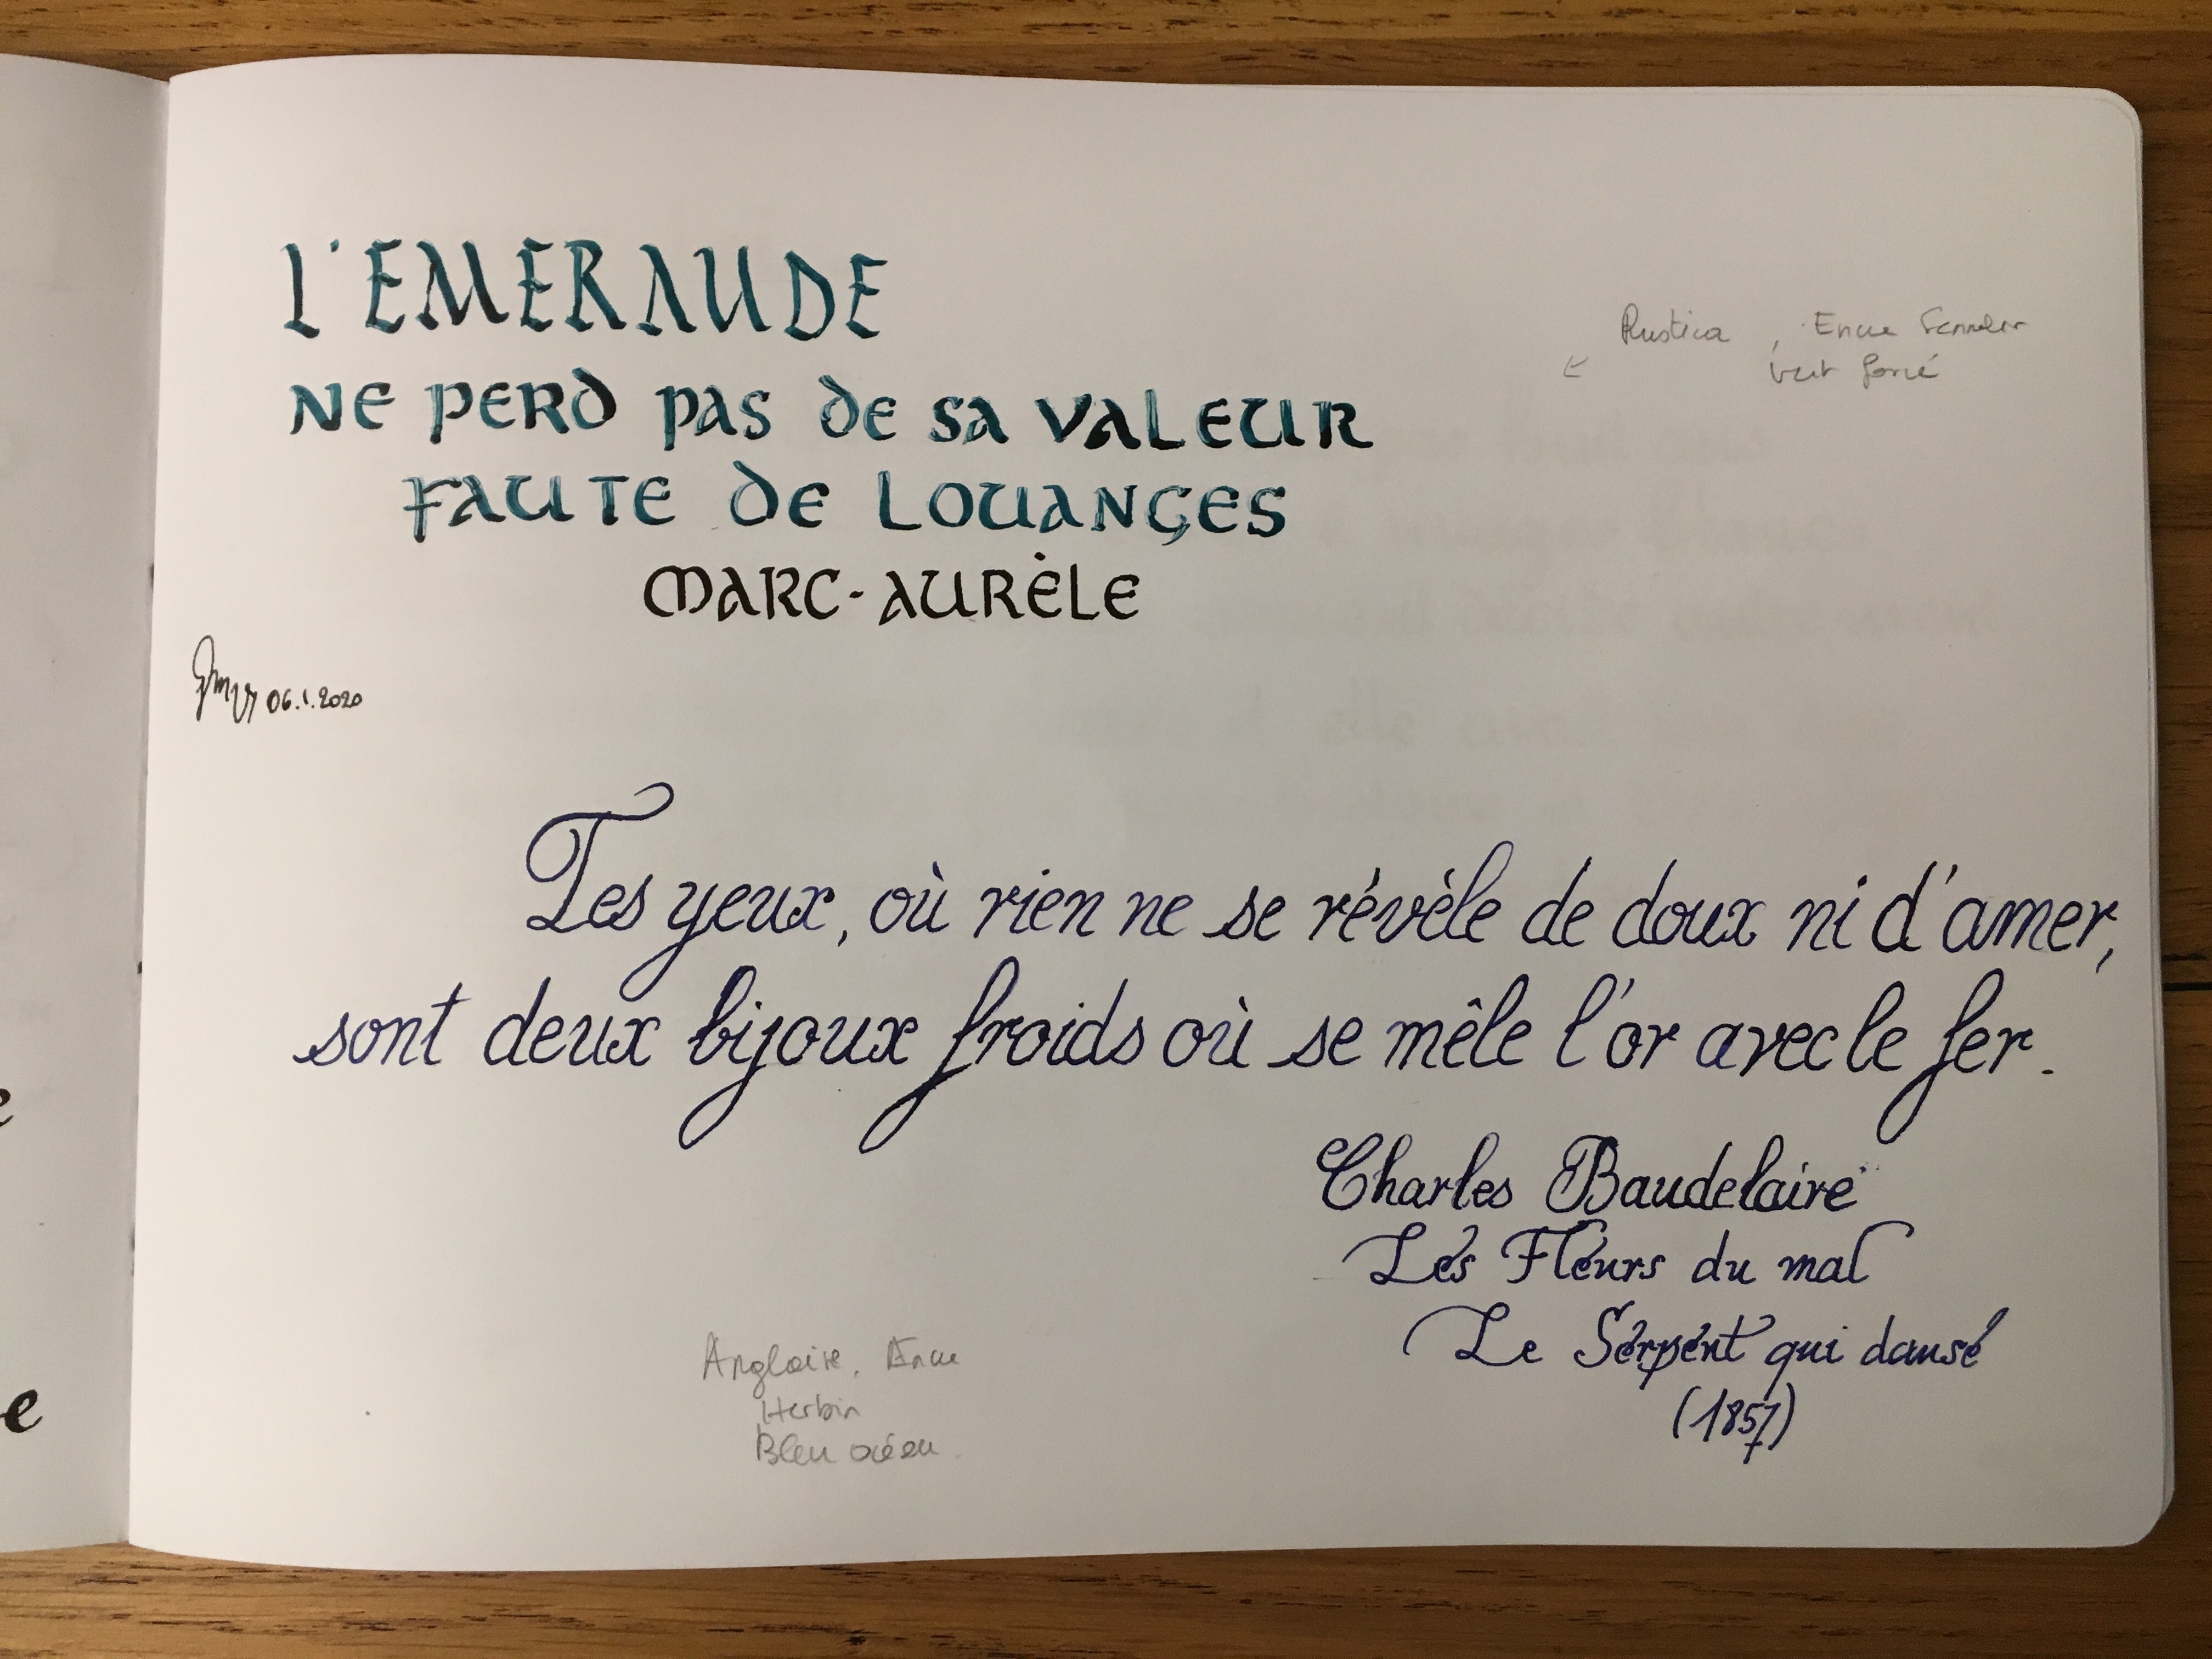 L'EMERAUDE
NE PERD PAS DE SA VALEUR
FAUTE DE LOUANGES
MARC-AURÈLE
Rustica, Encre Sennelier
vert foncé
06.1.2020
Tes yeux, où rien ne se révèle de doux ni d'amer,
sont deux bijoux froids où se mêle l'or avec le fer.
Charles Baudelaire
Les Fleurs du mal
Le Serpent qui danse
(1857)
Anglaise, Encre
Herbin
Bleu océan
e
e